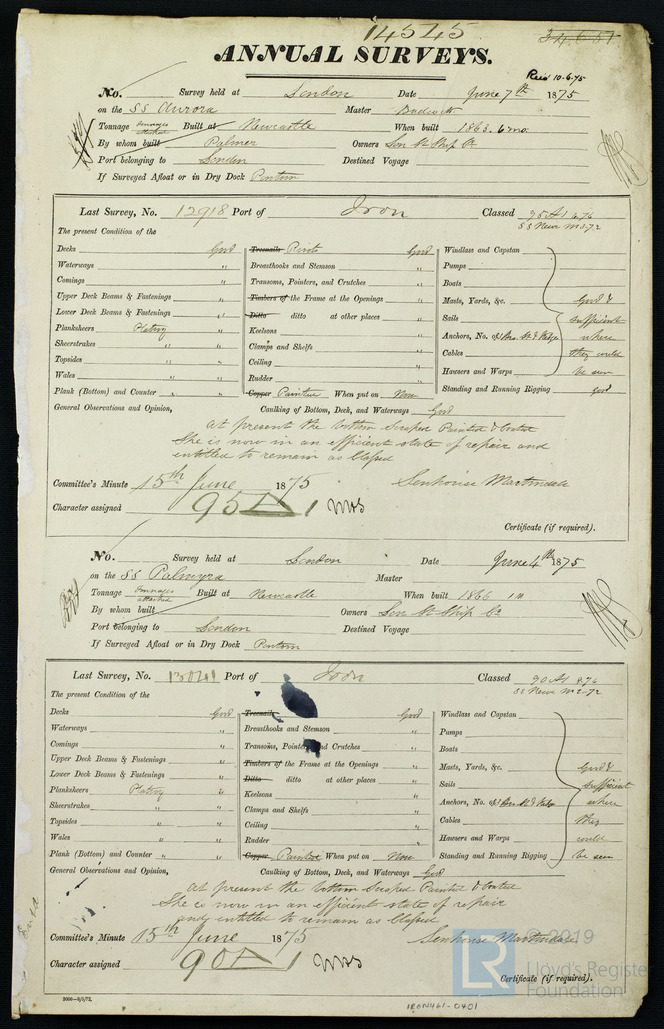 14545
ANNUAL SURVEYS.
Recd 10.6.75
No. Survey held at London Date June 7th 1875
on the SS Aurora Master
Tonnage Tonnages attached Built at Newcastle When built 1863. 6 mo.
By whom built Palmer Owners Gen St Ship Co
Port belonging to London Destined Voyage
If Surveyed Afloat or in Dry Dock Pontoon
Last Survey, No. 12918 Port of Iron Classed 95 A1 6.76
SS Newc M 3-72
The present Condition of the
Decks Good Treenails Rivets Good Windlass and Capstan
Waterways " Breasthooks and Stemson " Pumps
Comings " Transoms, Pointers, and Crutches " Boats
Upper Deck Beams & Fastenings " Timbers of the Frame at the Openings " Masts, Yards, &c. Good &
Lower Deck Beams & Fastenings " Ditto ditto at other places " Sails sufficient
Planksheers Plating " Keelsons " Anchors, No. of where
Sheerstrakes " " Clamps and Shelfs " Cables they could
Topsides " " Ceiling " Hawsers and Warps be seen
Wales " " Rudder " Standing and Running Rigging good
Plank (Bottom) and Counter " " Copper Painted When put on Now
General Observations and Opinion, Caulking of Bottom, Deck, and Waterways Good
At present the bottom Scraped Painted & Coated
She is now in an efficient state of repair and
entitled to remain as Classed
Committee's Minute 15th June 1875 Senhouse Martindale
Character assigned 95 A 1
Certificate (if required).
No. Survey held at London Date June 4th 1875
on the SS Palmyra Master
Tonnage Tonnages attached Built at Newcastle When built 1866
By whom built Owners Gen St Ship Co
Port belonging to London Destined Voyage
If Surveyed Afloat or in Dry Dock Pontoon
Last Survey, No. 13041 Port of Iron Classed 90 A1 8.76
SS Newc M 2-72
The present Condition of the
Decks Good Treenails Good Windlass and Capstan
Waterways " Breasthooks and Stemson " Pumps
Comings " Transoms, Pointers, and Crutches " Boats
Upper Deck Beams & Fastenings " Timbers of the Frame at the Openings " Masts, Yards, &c. Good &
Lower Deck Beams & Fastenings " Ditto ditto at other places " Sails sufficient
Planksheers Plating " Keelsons " Anchors, No. of where
Sheerstrakes " " Clamps and Shelfs " Cables they
Topsides " " Ceiling " Hawsers and Warps could
Wales " " Rudder " Standing and Running Rigging be seen
Plank (Bottom) and Counter " " Copper Painted When put on Now
General Observations and Opinion, Caulking of Bottom, Deck, and Waterways Good
At present the bottom Scraped Painted & Coated
She is now in an efficient state of repair
and entitled to remain as Classed
Committee's Minute 15th June 1875 Senhouse Martindale
Character assigned 90 A 1
Certificate (if required).
© 2019
LR Lloyd's Register Foundation
IRON461-0401